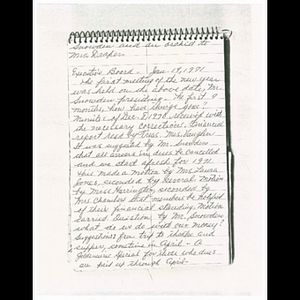 Snowden and an orchid to
Mrs. Draper.
Executive Board - Jan. 19, 1971
The first meeting of the new year
was held on the above date, Mr.
Snowden presiding. The first 9
months how have things gone?
Minutes of Dec. 8, 1970 received with
the necessary corrections. Financial
report read by Treas. Mrs. Vaughn
It was suggested by Mr. Snowden
that all arrears in dues be cancelled
and we start afresh for 1971.
This made a motion by Mrs. Laura
Jones, seconded by several. Motion
by Miss Harrington, seconded by
Mrs. Chambers that members be notified
of their financial standing. Motion
carried. Question by Mr. Snowden
what do we do with our money?
Suggestions for trip to theatre and
supper, sometime in April - A
Special for those who dues
are paid up through April.